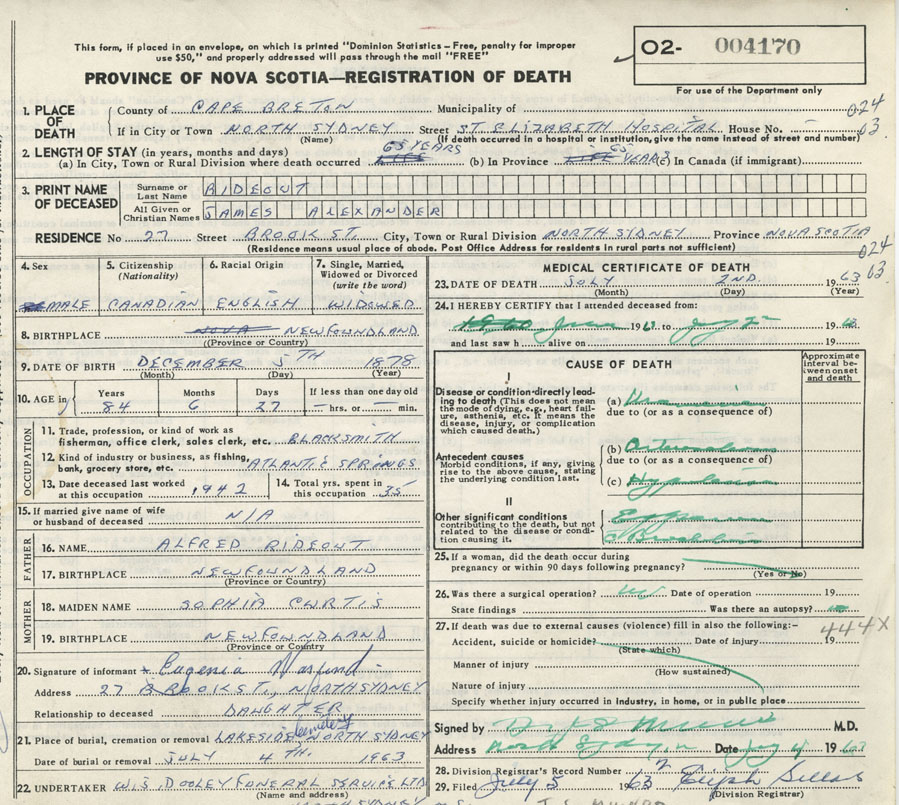 This form, if placed in an envelope, on which is printed "Dominion Statistics – Free, penalty for improper
use $50," and properly addressed will pass through the mail "FREE"
PROVINCE OF NOVA SCOTIA—REGISTRATION OF DEATH
O2- 004170
For use of the Department only
1. PLACE OF DEATH
County of CAPE BRETON Municipality of
024
If in City or Town NORTH SYDNEY Street ST ELIZABETH HOSPITAL House No. –
63
(Name) (If death occurred in a hospital or institution, give the name instead of street and number)
2. LENGTH OF STAY (in years, months and days)
(a) In City, Town or Rural Division where death occurred 65 YEARS (b) In Province 65 YEARS (c) In Canada (if immigrant)
3. PRINT NAME OF DECEASED
Surname or Last Name RIDEOUT
All Given or Christian Names JAMES ALEXANDER
RESIDENCE No 27 Street BROOK ST. City, Town or Rural Division NORTH SYDNEY Province NOVA SCOTIA
(Residence means usual place of abode. Post Office Address for residents in rural parts not sufficient)
024
63
4. Sex MALE
5. Citizenship (Nationality) CANADIAN
6. Racial Origin ENGLISH
7. Single, Married, Widowed or Divorced (write the word) WIDOWED
8. BIRTHPLACE NOVA NEWFOUNDLAND
(Province or Country)
9. DATE OF BIRTH DECEMBER 5TH 1878
(Month) (Day) (Year)
10. AGE in Years 84 Months 6 Days 27 If less than one day old – hrs. or – min.
OCCUPATION
11. Trade, profession, or kind of work as fisherman, office clerk, sales clerk, etc. BLACKSMITH
12. Kind of industry or business, as fishing, bank, grocery store, etc. ATLANTIC SPRINGS
13. Date deceased last worked at this occupation 1942
14. Total yrs. spent in this occupation 35
15. If married give name of wife or husband of deceased N/A
FATHER
16. NAME ALFRED RIDEOUT
17. BIRTHPLACE NEWFOUNDLAND
(Province or Country)
MOTHER
18. MAIDEN NAME SOPHIA CURTIS
19. BIRTHPLACE NEWFOUNDLAND
(Province or Country)
20. Signature of informant Eugenia
Address 27 BROOK ST., NORTH SYDNEY
Relationship to deceased DAUGHTER
21. Place of burial, cremation or removal LAKESIDE Cemetery NORTH SYDNEY
Date of burial or removal JULY 4TH 1963
22. UNDERTAKER W.S. DOOLEY FUNERAL SERVICE LTD
(Name and address)
MEDICAL CERTIFICATE OF DEATH
23. DATE OF DEATH JULY 2ND. 1963
(Month) (Day) (Year)
24. I HEREBY CERTIFY that I attended deceased from:
June 19 to 2 19
and last saw h alive on 19
CAUSE OF DEATH
Approximate interval between onset and death
I
Disease or condition directly leading to death (This does not mean the mode of dying, e.g., heart failure, asthenia, etc. It means the disease, injury, or complication which caused death.)
(a)
due to (or as a consequence of)
Antecedent causes
Morbid conditions, if any, giving rise to the above cause, stating the underlying condition last.
(b)
due to (or as a consequence of)
(c)
II
Other significant conditions
contributing to the death, but not related to the disease or condition causing it.
25. If a woman, did the death occur during
pregnancy or within 90 days following pregnancy?
(Yes or No)
26. Was there a surgical operation? Date of operation 19
State findings Was there an autopsy?
27. If death was due to external causes (violence) fill in also the following:–
444X
Accident, suicide or homicide? Date of injury 19
(State which)
Manner of injury
(How sustained)
Nature of injury
Specify whether injury occurred in Industry, in home, or in public place
Signed by M.D.
Address North Sydney Date July 4 1963
28. Division Registrar's Record Number
29. Filed July 5 1963
(Division Registrar)